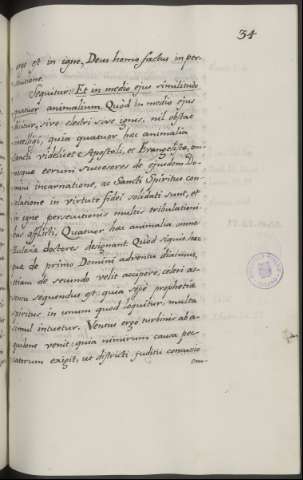 34
ergo est in igne, Deus homo factus in per-
secutione.
Sequitur: Et in medio ejus similitudo
quatuor animalium. Quòd in medio ejus
dicitur, sive electri sive ignis, nil obstat
intelligi, quia quatuor haec animalia
Sancti videlicet Apostoli, et Evangelistae, om-
nesque eorum successores de ejusdem Do-
mini incarnatione, ac Sancti Spiritus con-
solatione in virtute fidei solidati sunt, et
in igne persecutionis multis tribulationi-
bus afflicti. Quatuor haec animalia omnes
Ecclesiae doctores designant. Quod siquis haec
quae de primo Domini adventu diximus,
etiam de secundo velit accipere,
sequendus est: quia sepè prophetiae
spiritus, in unum quod loquitur, multa
simul intuetur. Ventus ergo turbinis ab a-
quilone venit: quia nimirum causa pec-
catorum exigit, ut districti juditii comotio
om-